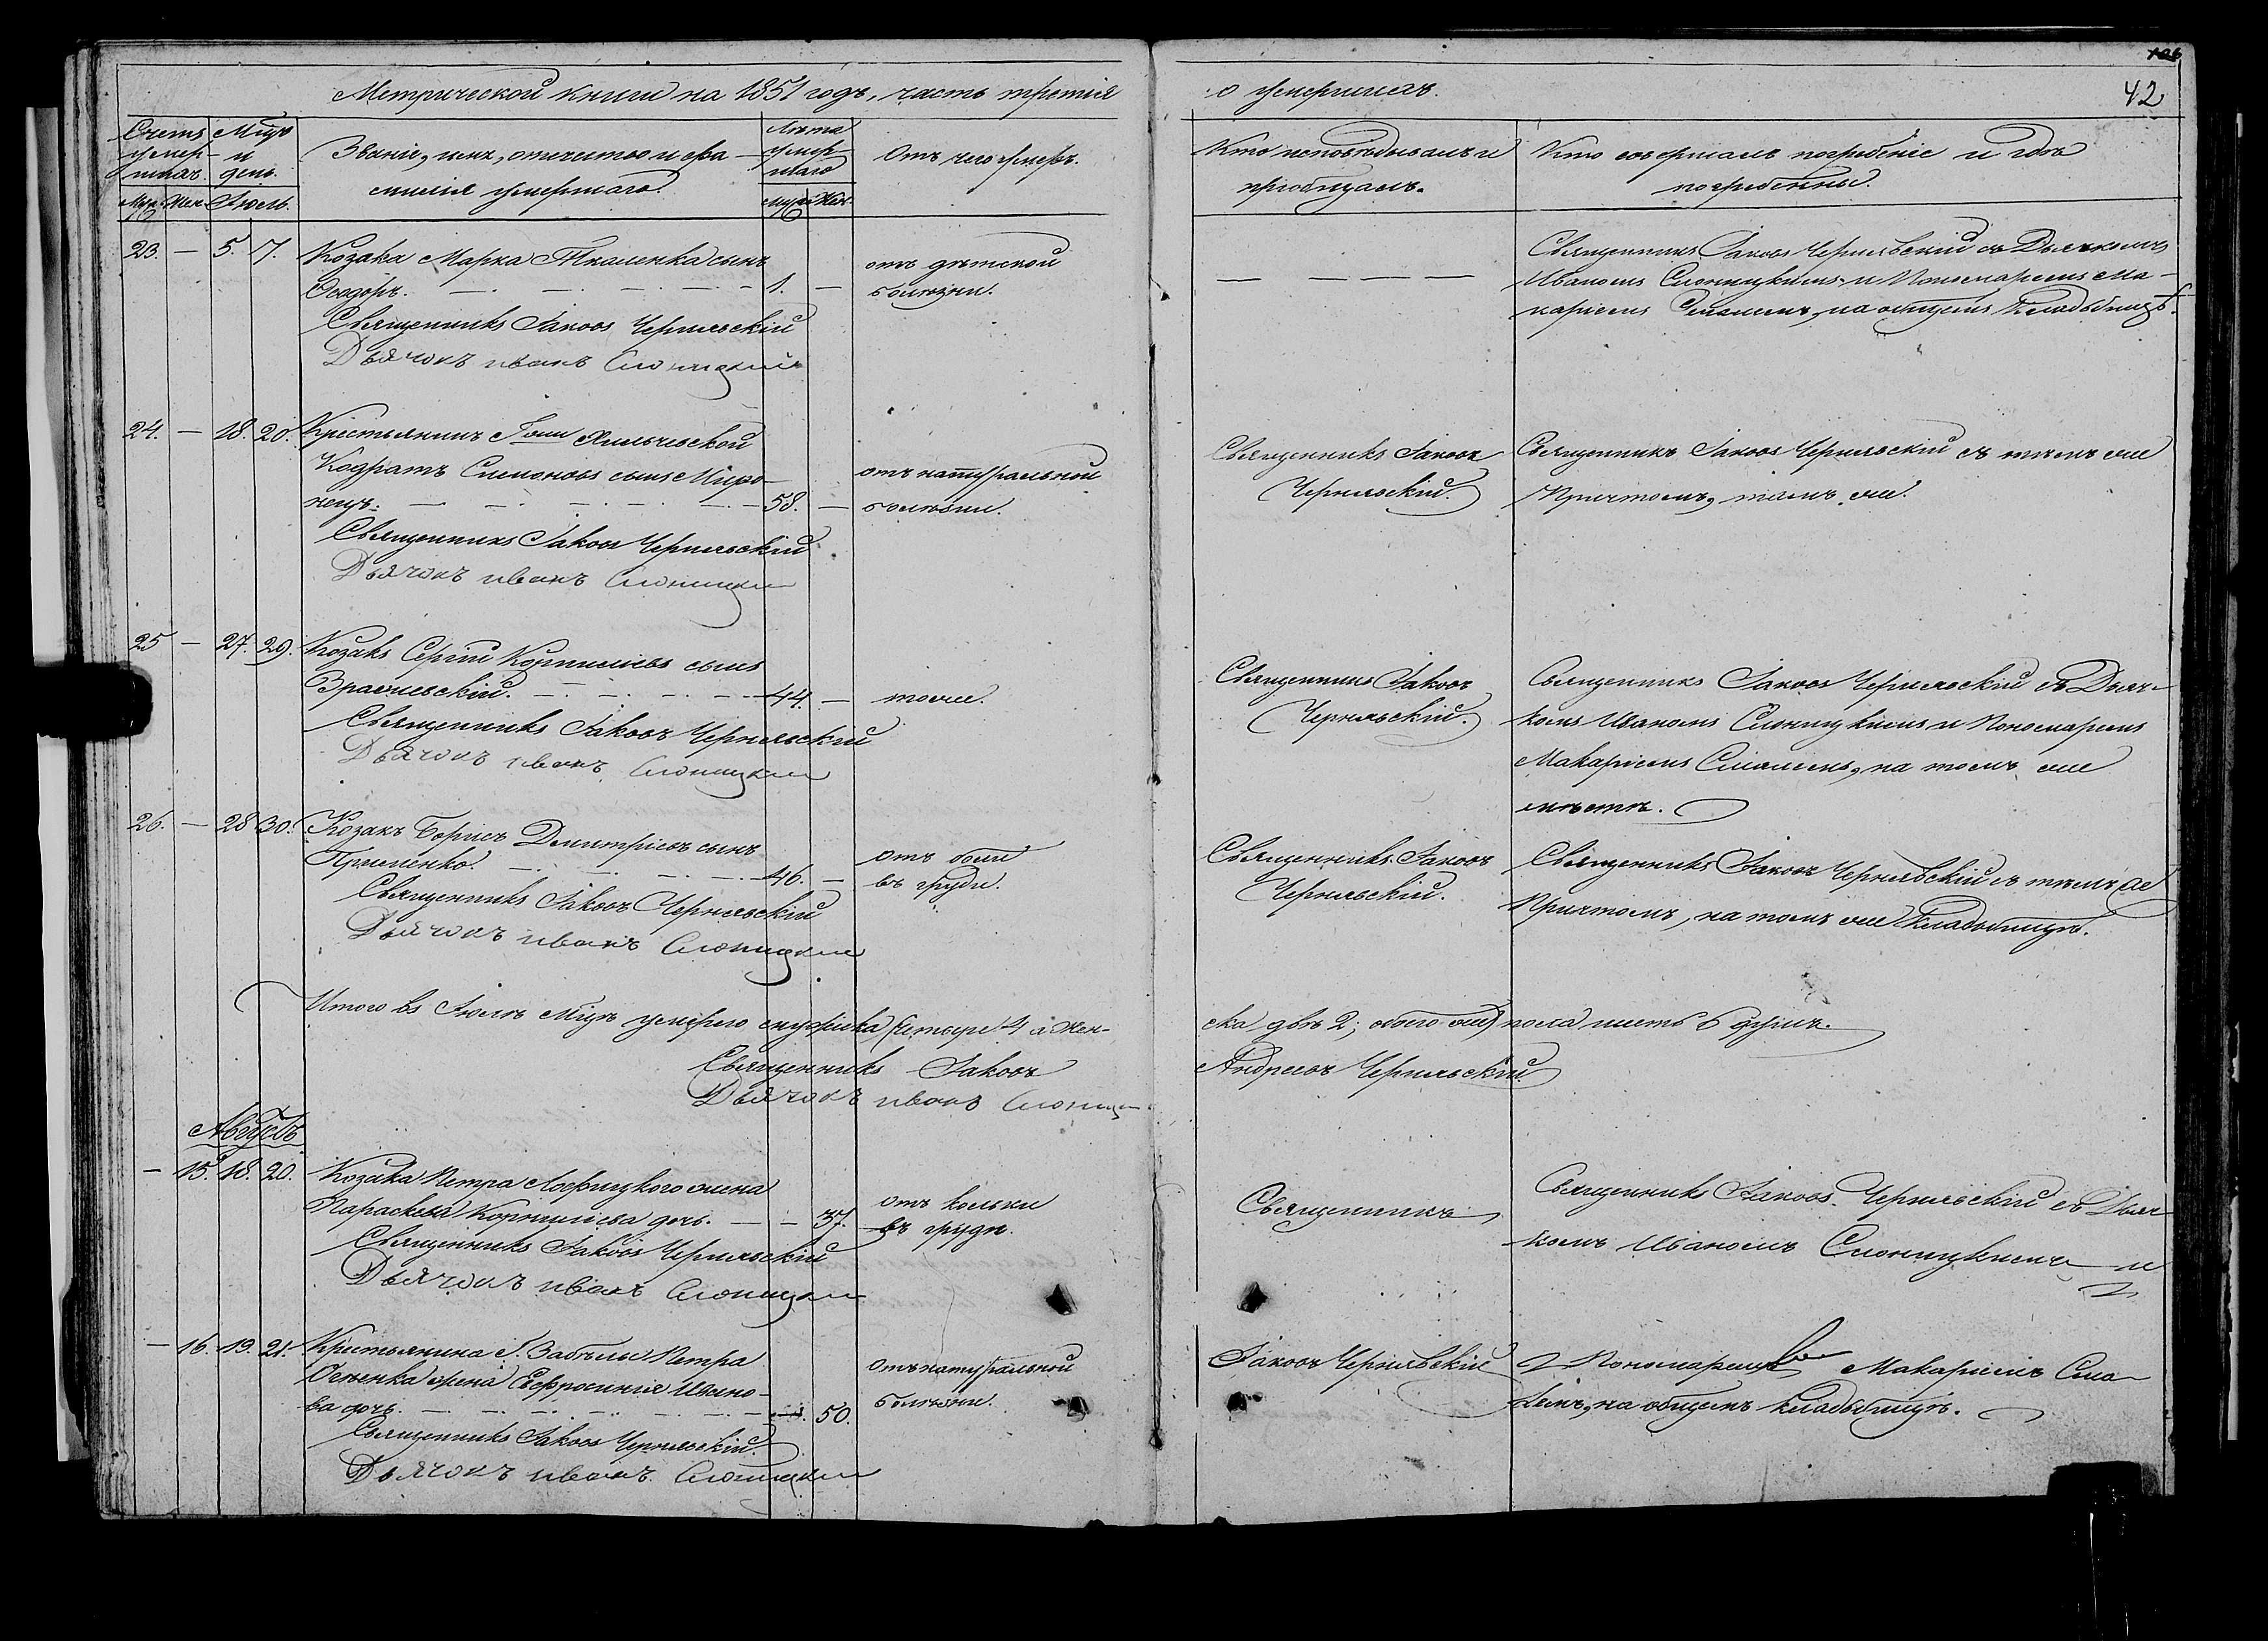 126
42
Метрической книги на 1851 годъ, часть третія
о умершихъ.
Счетъ умер-шихъ
Муж. Жен.
Мцъ и день.
Іюль.
Званіе, имя, отечество и фа-
милія умершаго.
Лѣта умер-шаго
муж. жен.
Отъ чего умеръ.
Кто исповѣдывалъ и
пріобщалъ.
Кто совершалъ погребеніе и гдѣ
погребенны.
23. — 5. 7. Козака Марка Ткаленка сынъ
Ѳеодоръ. 1. —
отъ дѣтской
болѣзни.
Священникъ Іаковъ Чернявскій
Дьячокъ иванъ Слоницкий
— — — —
Священникъ Іаковъ Чернявскій съ Дьячкомъ
Иваномъ Слоницкимъ и Пономаремъ Ма-
каріемъ на общемъ Кладбищѣ.
24. — 18. 20. Крестьянинъ
Кодратъ Симоновъ сынъ Миро-
нецъ. 58. —
отъ натуральной
болѣзни.
Священникъ Іаковъ Чернявскій
Дьячокъ иванъ Слоницки
Священникъ Іаковъ
Чернявскій.
Священникъ Іаковъ Чернявскій съ тѣмъ же
Причтомъ, тамъ же.
25 — 27. 29. Козакъ Сергій Корниліевъ сынъ
Вражевскій. 44. —
тоже.
Священникъ Іаковъ Чернявскій
Дьячокъ иванъ Слоницки
Священникъ Іаковъ
Чернявскій.
Священникъ Іаковъ Чернявскій съ Дьяч-
комъ Иваномъ Слоницкимъ и Пономаремъ
Макаріемъ на томъ же
мѣстѣ.
26. — 28 30. Козакъ Борисъ Димитріевъ сынъ
46. —
отъ боли
въ груди.
Священникъ Іаковъ Чернявскій
Дьячокъ иванъ Слоницки
Священникъ Іаковъ
Чернявскій.
Священникъ Іаковъ Чернявскій съ тѣмъ же
Причтомъ, на томъ же Кладбищѣ.
Итого въ Іюлѣ мцѣ умерло мужеска четыре 4 а жен-
ска двѣ 2; обоего же пола шесть 6 душъ.
Священникъ Іаковъ
Андреевъ Чернявскій
Дьячокъ иванъ Слониц
Августъ
— 15. 18. 20. Козака Петра жена
Параскева Корниліева дочь. — — 37.
отъ кольки
въ грудѣ.
Священникъ Іаковъ Чернявскій
Дьячокъ иванъ Слоницки
Священникъ
Священникъ Іаковъ Чернявскій съ Дьяч-
комъ Иваномъ Слоницкимъ и
— 16. 19. 21. Крестьянина Г. Забѣлы Петра
жена Евфросинія Ивано-
ва дочь. 50.
отъ натуральной
болѣзни.
Священникъ Іаковъ Чернявскій
Дьячокъ иванъ Слоницки
Іаковъ Чернявскій
Пономаремъ Макаріемъ
на общемъ кладбищѣ.